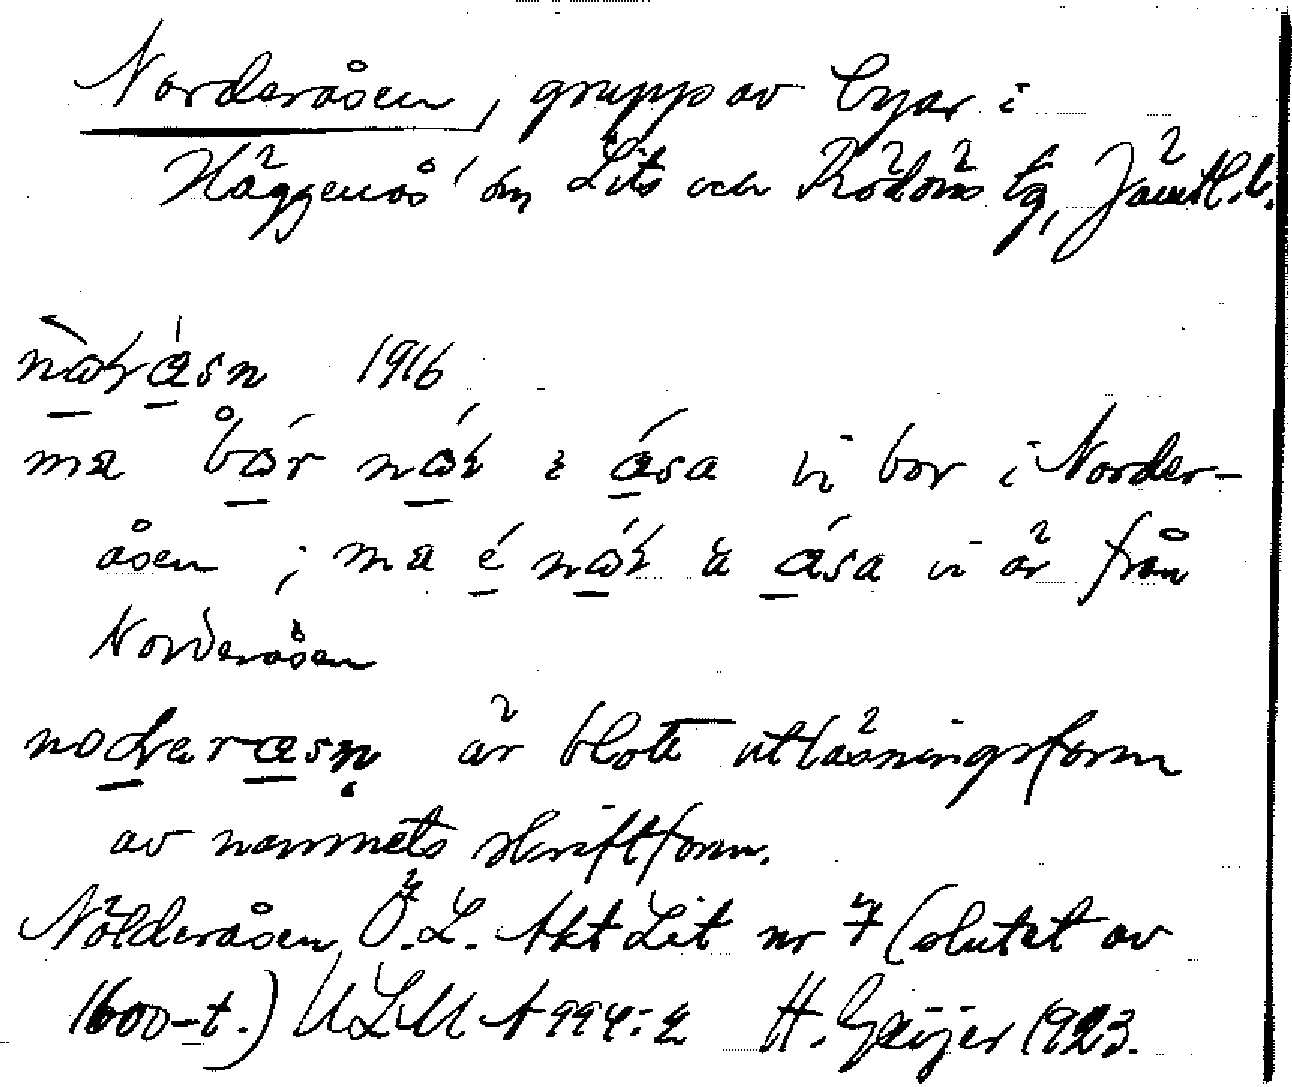 Norderåsen, grupp av byar i
Häggenås' sn, Lits och Rödöns tg, Jämtl. l.
1916
vi bor i Norder-
åsen ; vi är från
Norderåsen
är blott utläsningsform
av namnets skriftform.
Nölderåsen Ö.L. Akt Lit nr 7 (slutet av
1600-t.) ULMA 994:2 H. Geijer 1923.